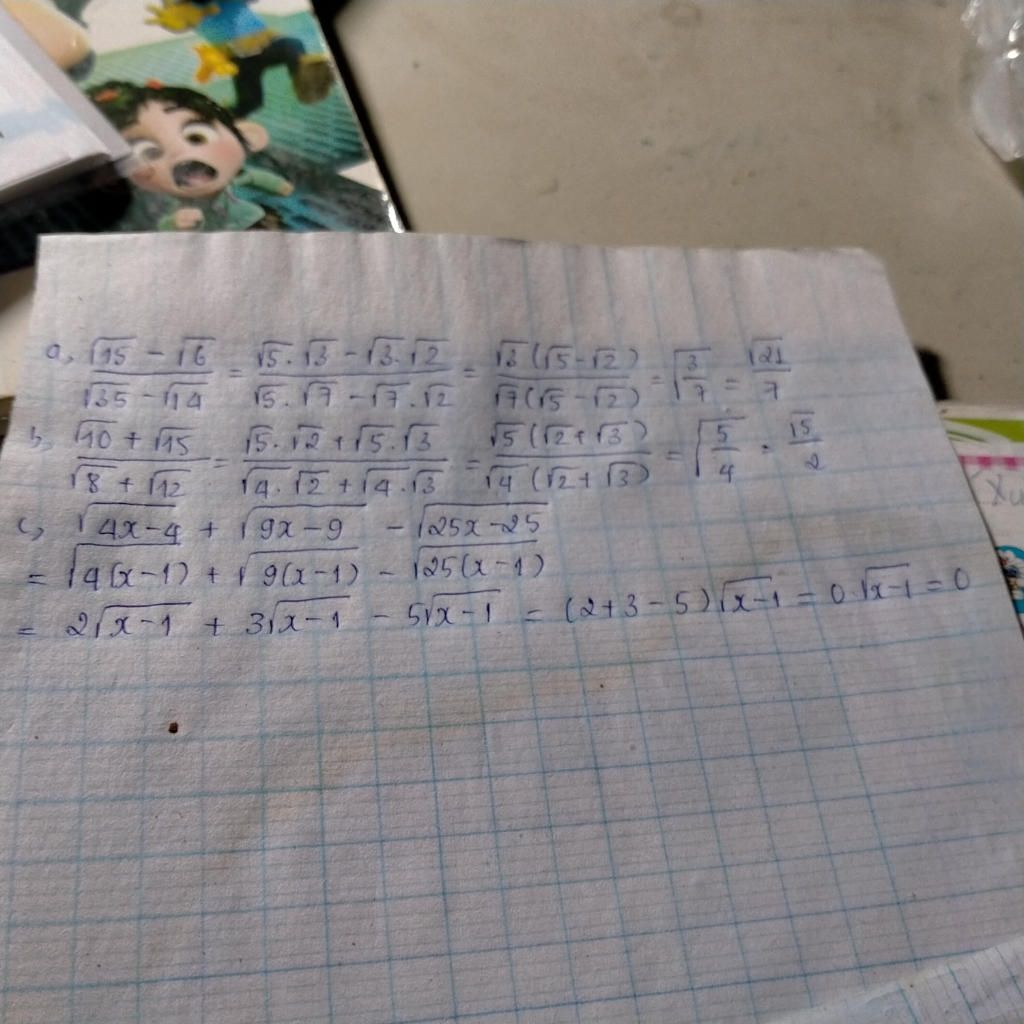 a, \frac{\sqrt{15} - \sqrt{6}}{\sqrt{35} - \sqrt{14}} = \frac{\sqrt{5}.\sqrt{3} - \sqrt{3}.\sqrt{2}}{\sqrt{5}.\sqrt{7} - \sqrt{7}.\sqrt{2}} = \frac{\sqrt{3}(\sqrt{5} - \sqrt{2})}{\sqrt{7}(\sqrt{5} - \sqrt{2})} = \sqrt{\frac{3}{7}} = \frac{\sqrt{21}}{7}
b, \frac{\sqrt{10} + \sqrt{15}}{\sqrt{8} + \sqrt{12}} = \frac{\sqrt{5}.\sqrt{2} + \sqrt{5}.\sqrt{3}}{\sqrt{4}.\sqrt{2} + \sqrt{4}.\sqrt{3}} = \frac{\sqrt{5}(\sqrt{2} + \sqrt{3})}{\sqrt{4}(\sqrt{2} + \sqrt{3})} = \sqrt{\frac{5}{4}} = \frac{\sqrt{5}}{2}
c, \sqrt{4x-4} + \sqrt{9x-9} - \sqrt{25x-25}
= \sqrt{4(x-1)} + \sqrt{9(x-1)} - \sqrt{25(x-1)}
= 2\sqrt{x-1} + 3\sqrt{x-1} - 5\sqrt{x-1} = (2+3-5)\sqrt{x-1} = 0.\sqrt{x-1} = 0